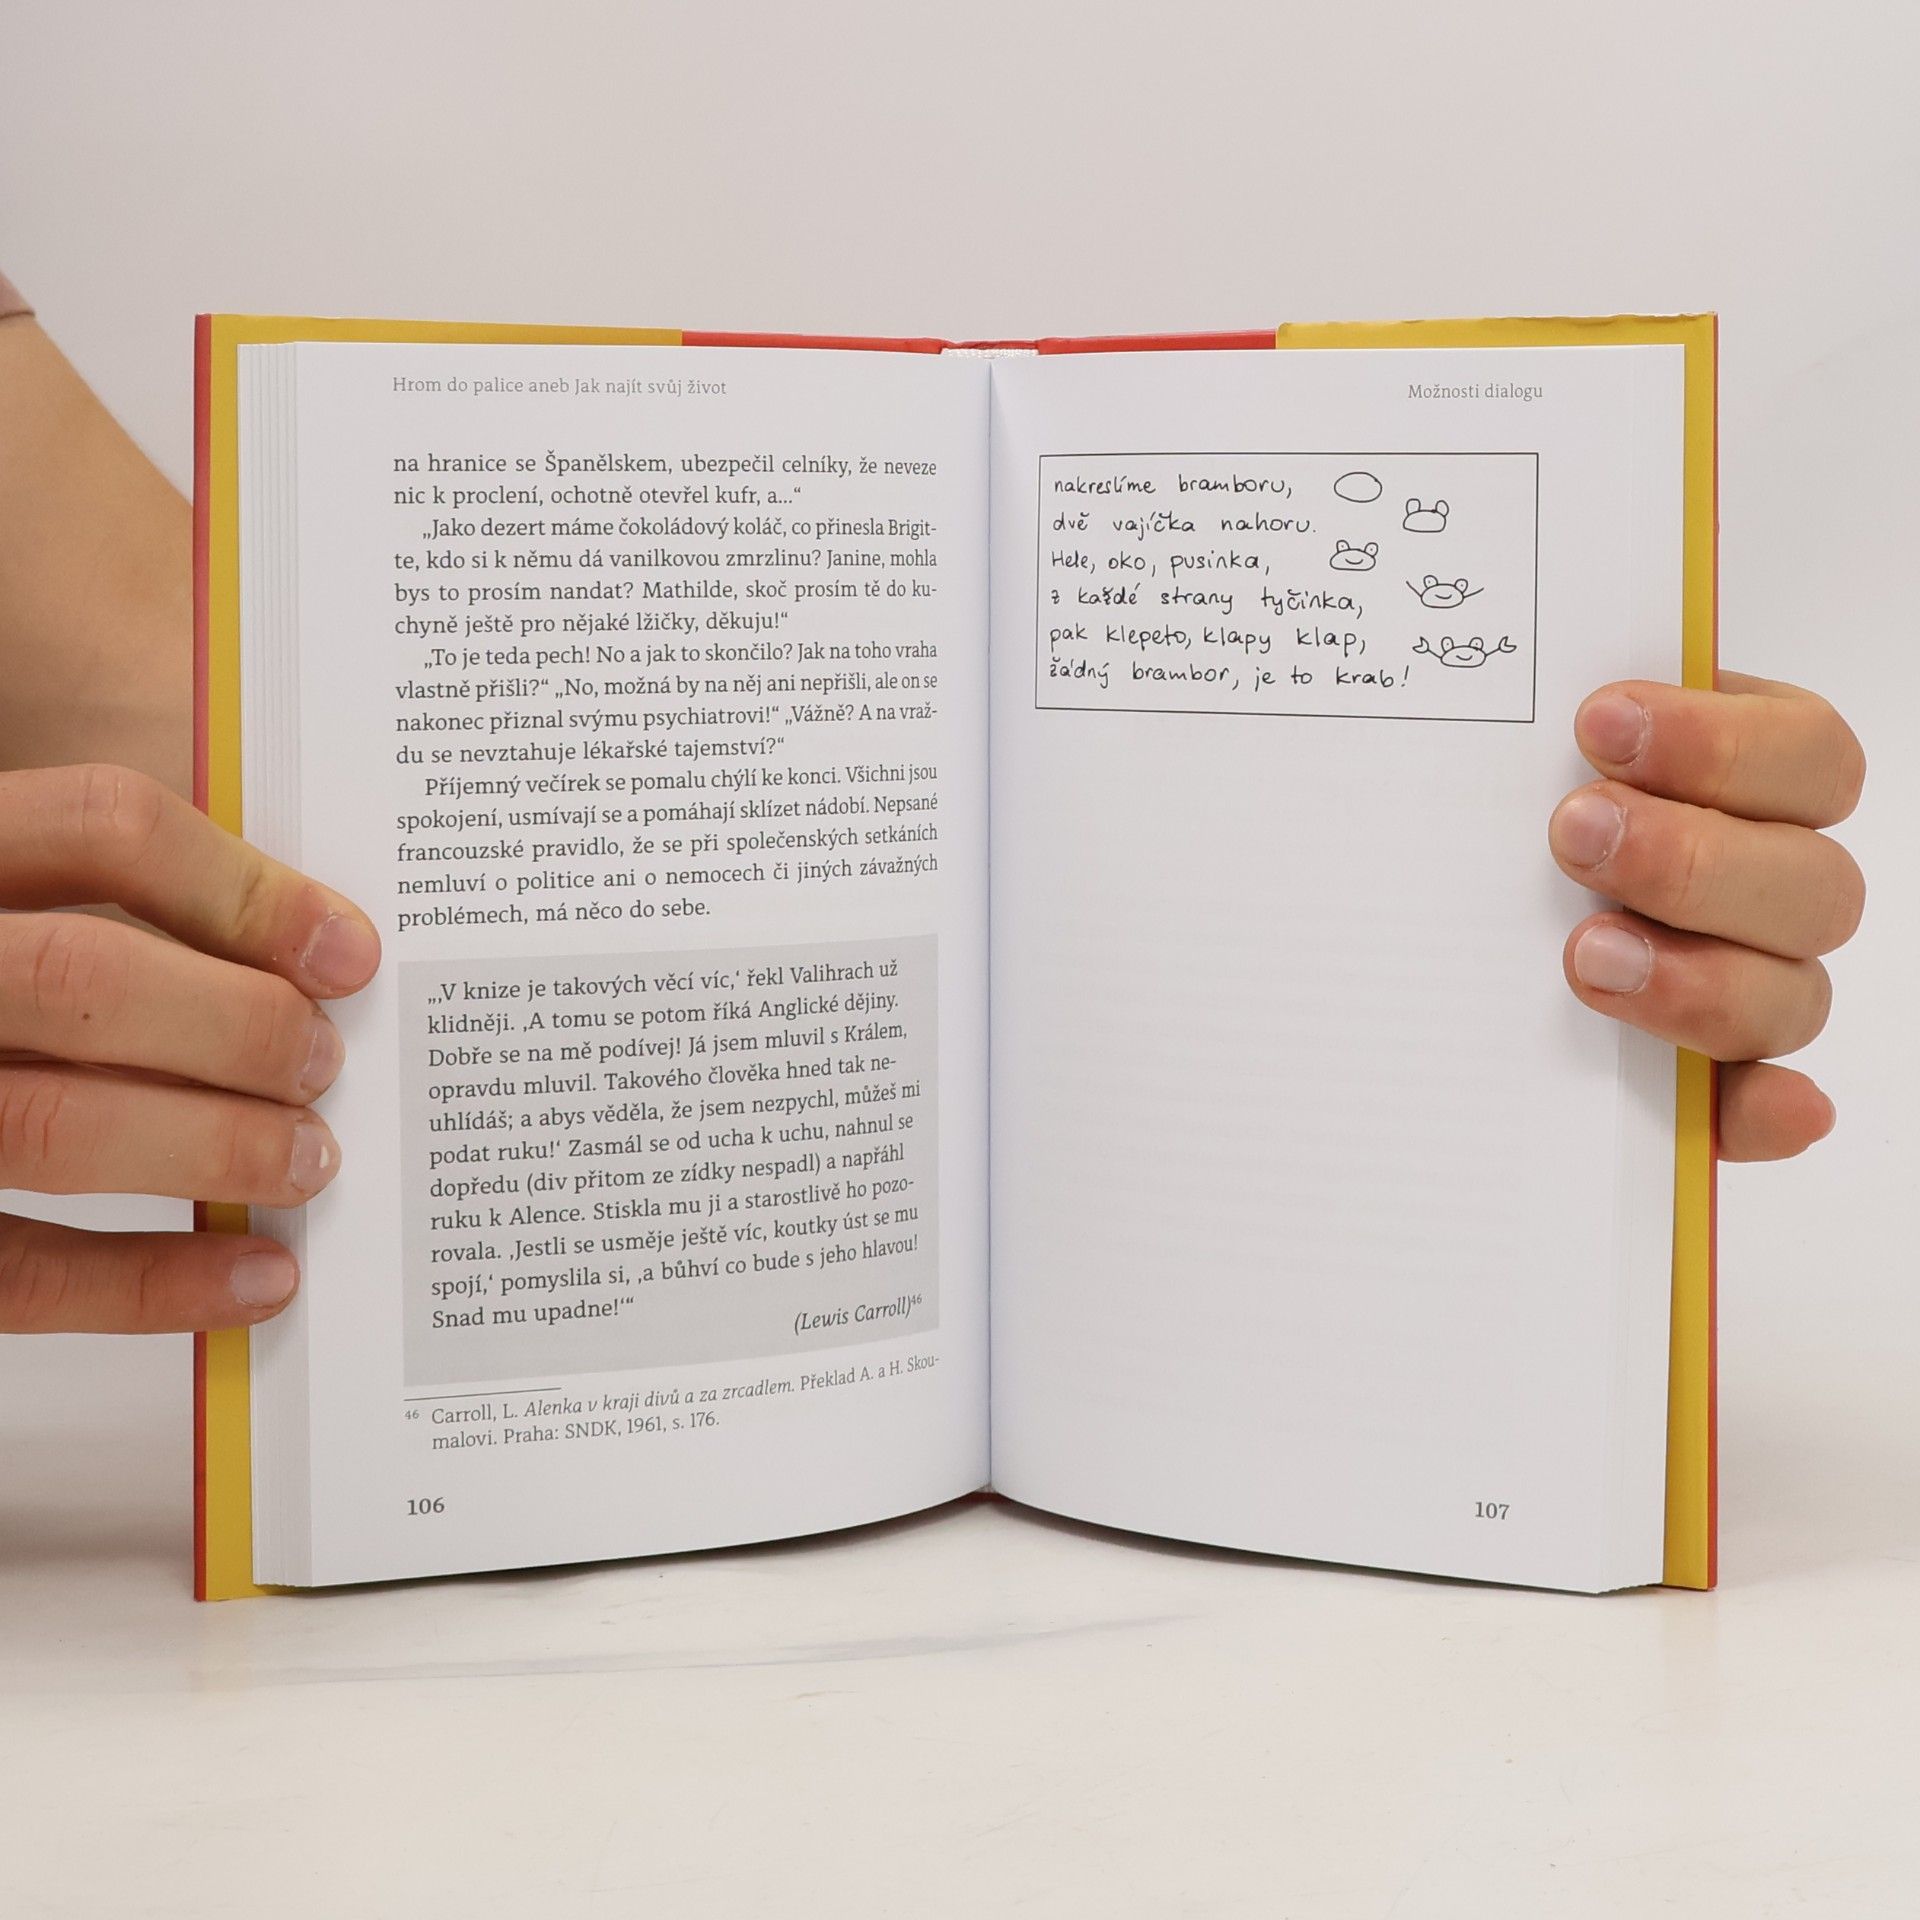 Hrom do palice aneb Jak najít svůj život
na hranice se Španělskem, ubezpečil celníky, že neveze
nic k proclení, ochotně otevřel kufr, a...“
„Jako dezert máme čokoládový koláč, co přinesla Brigit-
te, kdo si k němu dá vanilkovou zmrzlinu? Janine, mohla
bys to prosím nandat? Mathilde, skoč prosím tě do ku-
chyně ještě pro nějaké lžičky, děkuju!“
„To je teda pech! No a jak to skončilo? Jak na toho vraha
vlastně přišli?“ „No, možná by na něj ani nepřišli, ale on se
nakonec přiznal svýmu psychiatrovi!“ „Vážně? A na vraž-
du se nevztahuje lékařské tajemství?“
Příjemný večírek se pomalu chýlí ke konci. Všichni jsou
spokojení, usmívají se a pomáhají sklízet nádobí. Nepsané
francouzské pravidlo, že se při společenských setkáních
nemluví o politice ani o nemocech či jiných závažných
problémech, má něco do sebe.
„‚V knize je takových věcí víc,‘ řekl Valihrach už
klidněji. ‚A tomu se potom říká Anglické dějiny.
Dobře se na mě podívej! Já jsem mluvil s Králem,
opravdu mluvil. Takového člověka hned tak ne-
uhlídáš; a abys věděla, že jsem nezpychl, můžeš mi
podat ruku!‘ Zasmál se od ucha k uchu, nahnul se
dopředu (div přitom ze zídky nespadl) a napřáhl
ruku k Alence. Stiskla mu ji a starostlivě ho pozo-
rovala. ‚Jestli se usměje ještě víc, koutky úst se mu
spojí,‘ pomyslila si, ‚a bůhví co bude s jeho hlavou!
Snad mu upadne!‘“
(Lewis Carroll)46
46 Carroll, L. Alenka v kraji divů a za zrcadlem. Překlad A. a H. Skou-
malovi. Praha: SNDK, 1961, s. 176.
106
Možnosti dialogu
nakreslíme bramboru,
dvě vajíčka nahoru.
Hele, oko, pusinka,
z každé strany tyčinka,
pak klepeto, klapy klap,
žádný brambor, je to krab!
107